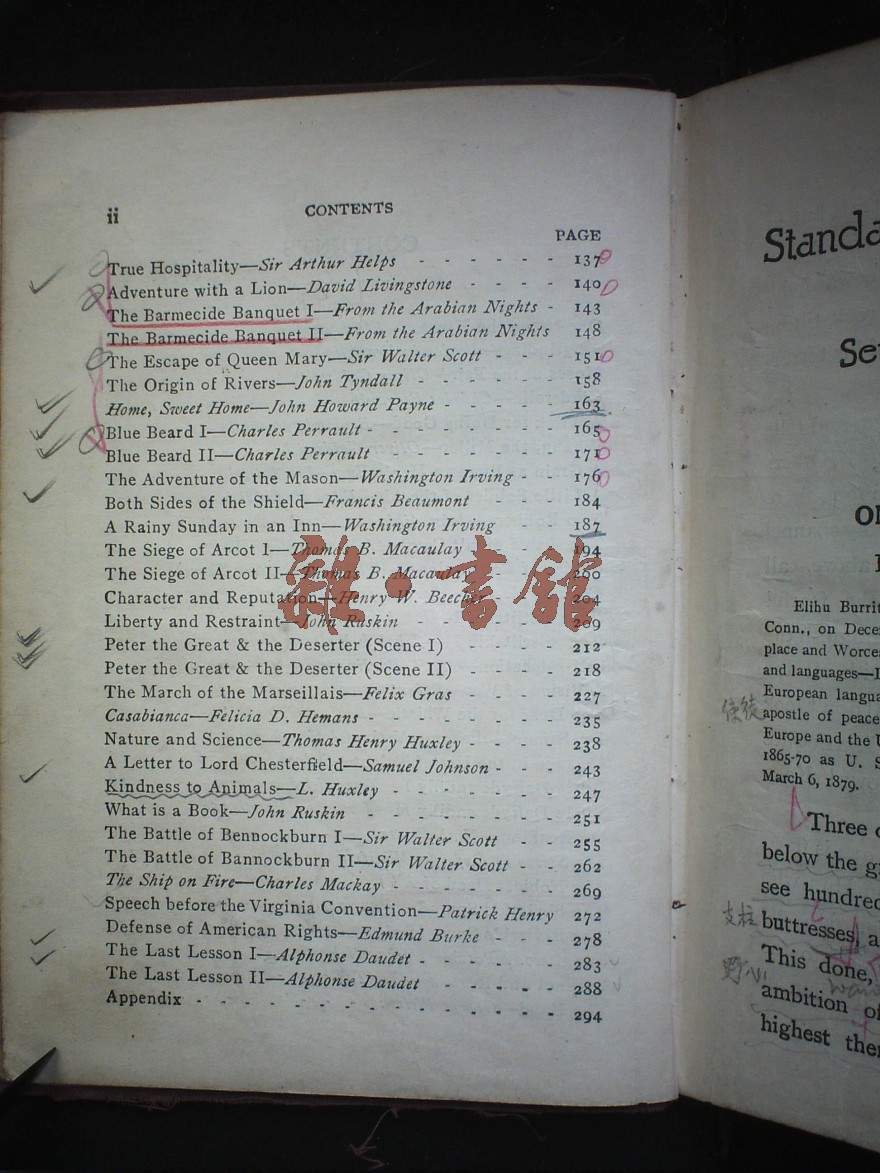 ii
CONTENTS
PAGE
True Hospitality—Sir Arthur Helps - - - - - - 137
Adventure with a Lion—David Livingstone - - - - 140
The Barmecide Banquet I—From the Arabian Nights - 143
The Barmecide Banquet II—From the Arabian Nights 148
The Escape of Queen Mary—Sir Walter Scott - - - 151
The Origin of Rivers—John Tyndall - - - - - - 158
Home, Sweet Home—John Howard Payne - - - - - 163
Blue Beard I—Charles Perrault - - - - - - - - 165
Blue Beard II—Charles Perrault - - - - - - - 171
The Adventure of the Mason—Washington Irving - - 176
Both Sides of the Shield—Francis Beaumont - - - 184
A Rainy Sunday in an Inn—Washington Irving - - 187
The Siege of Arcot I—Thomas B. Macaulay - - - 194
The Siege of Arcot II—Thomas B. Macaulay - - - 200
Character and Reputation—Henry W. Beecher - - 204
Liberty and Restraint—John Ruskin - - - - - - 209
Peter the Great & the Deserter (Scene I) - - - - 212
Peter the Great & the Deserter (Scene II) - - - - 218
The March of the Marseillais—Felix Gras - - - - 227
Casabianca—Felicia D. Hemans - - - - - - - - 235
Nature and Science—Thomas Henry Huxley - - - - 238
A Letter to Lord Chesterfield—Samuel Johnson - - - 243
Kindness to Animals—L. Huxley - - - - - - - 247
What is a Book—John Ruskin - - - - - - - - 251
The Battle of Bennockburn I—Sir Walter Scott - - 255
The Battle of Bannockburn II—Sir Walter Scott - - 262
The Ship on Fire—Charles Mackay - - - - - - - 269
Speech before the Virginia Convention—Patrick Henry 272
Defense of American Rights—Edmund Burke - - - 278
The Last Lesson I—Alphonse Daudet - - - - - - 283
The Last Lesson II—Alphonse Daudet - - - - - 288
Appendix - - - - - - - - - - - - - - 294
雜·書館
Standa
Se
Elihu Burrit
Conn., on Dece
place and Worce
and languages—
European langua
使徒 apostle of peace
Europe and the U
1865-70 as U. S
March 6, 1879.
Three
below the g
see hundred
支柱 buttresses, a
This done,
野心 ambition of
highest the